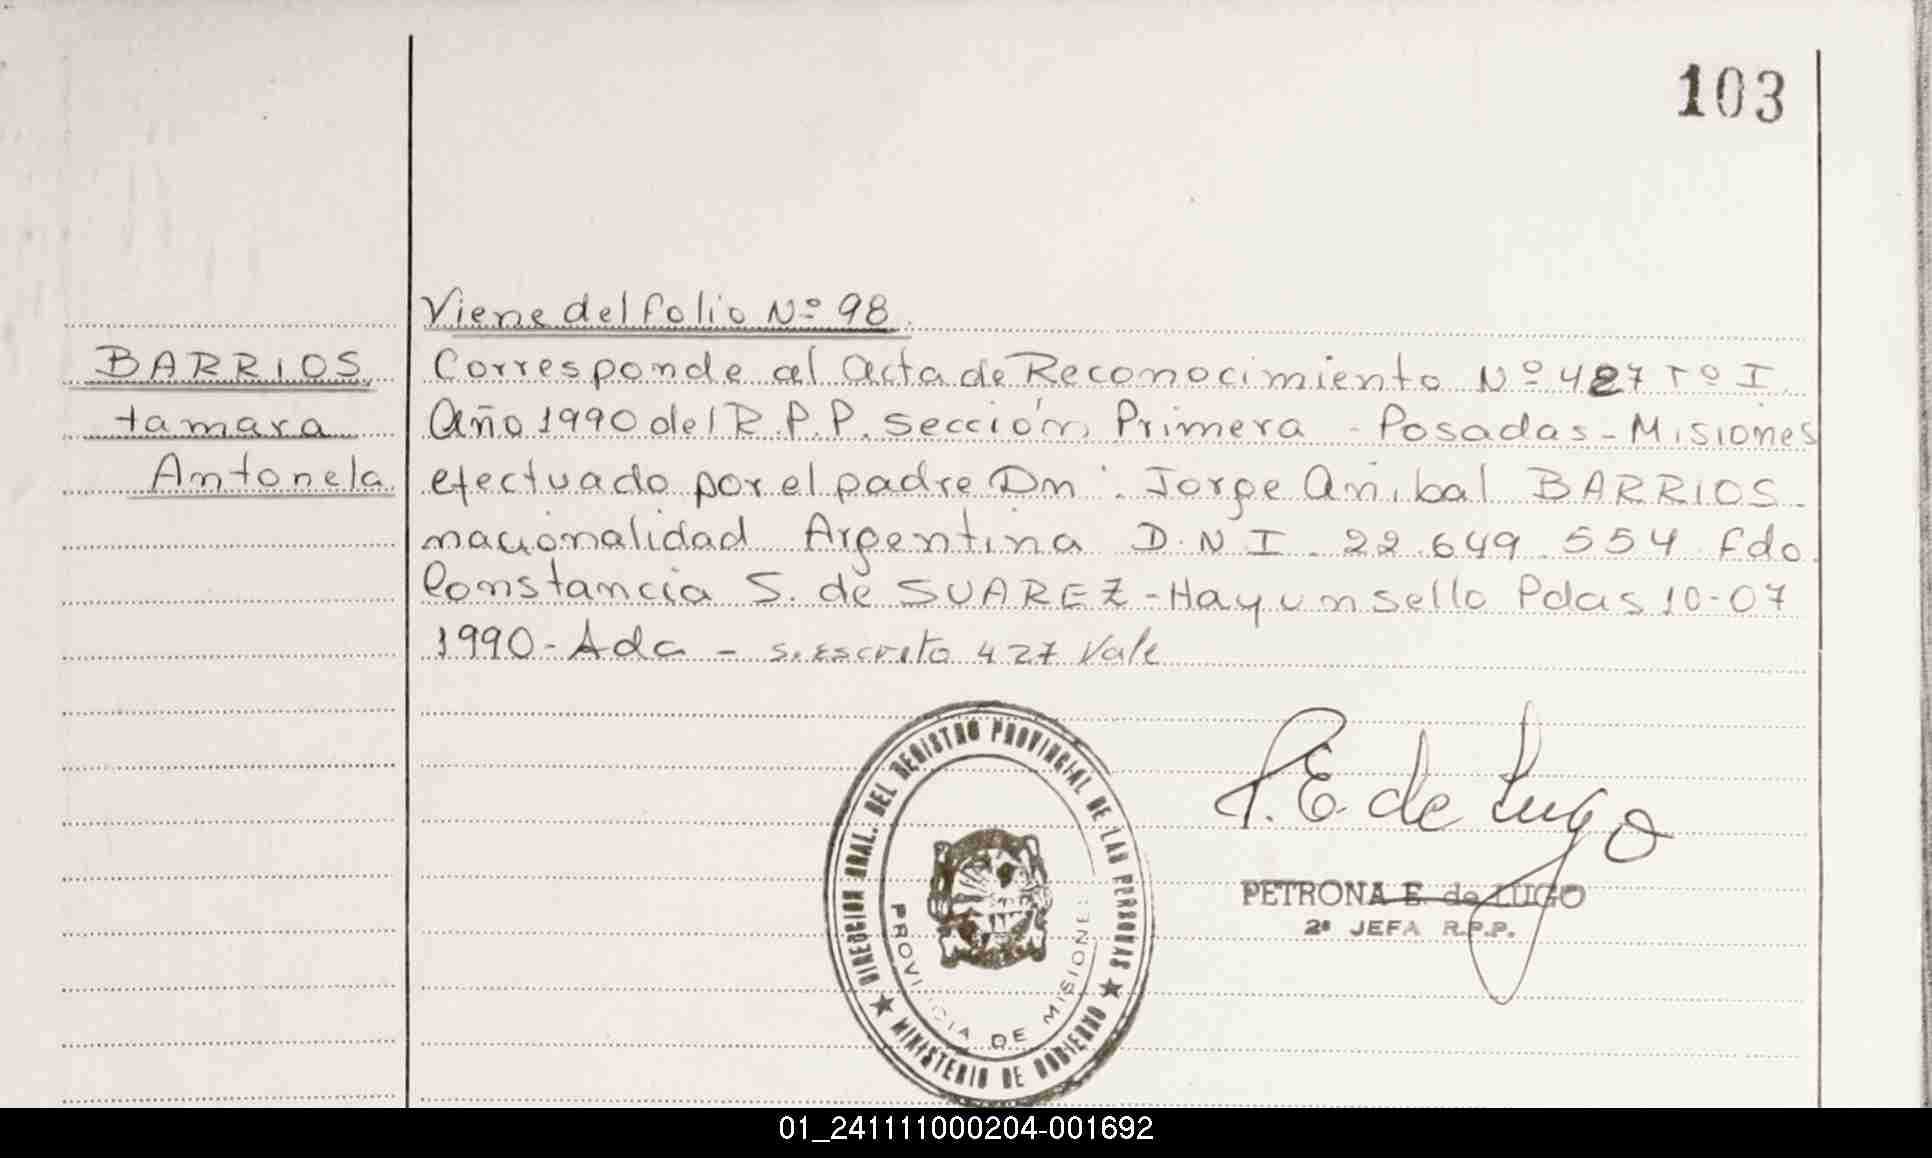 103
Viene del folio Nº 98.
BARRIOS
tamara
Antonela
Corresponde al acta de Reconocimiento Nº 427 Tº I.
Año 1990 del R.P.P. sección Primera - Posadas - Misiones
efectuado por el padre Dn: Jorge Anibal BARRIOS -
nacionalidad Argentina D.N.I. 22.649.554 fdo.
Constancia S. de SUAREZ - Hay un sello Pdas 10-07
1990 - Ada - S. Escrito 427 Vale
DIRECCION GRAL. DEL REGISTRO PROVINCIAL DE LAS PERSONAS
★ MINISTERIO DE GOBIERNO ★
PROVINCIA DE MISIONES
P. E. de Lugo
PETRONA E. de LUGO
2ª JEFA R.P.P.
01_241111000204-001692